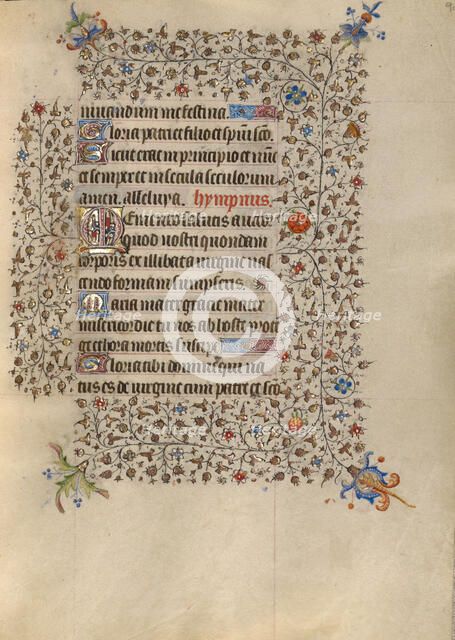 iuuandum me festina.
Gloria patri et filio et spui sco.
Sicut erat in principio et nuc
et semper et in secula seculorum
amen. alleluya. hympnus.
Memento salutis auctor
quod nostri quondam
corporis ex illibata uirgine nas
cendo formam sumpseris.
Maria mater gratie mater
misericordie tu nos ab hoste prote
ge et hora mortis suscipe.
Gloria tibi domine qui na
tus es de uirgine cum patre et sco